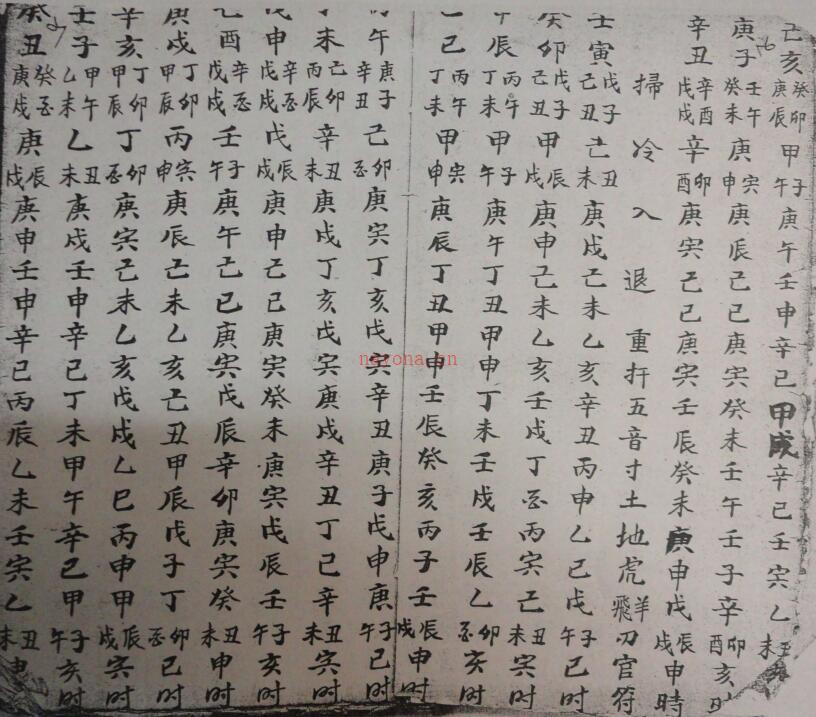 己亥癸卯庚辰甲子午庚午壬申辛巳甲戌辛巳壬寅乙丑未
庚子壬午癸未庚寅申庚辰己巳庚寅癸未壬午壬子辛卯酉亥时
辛丑辛酉戊戌辛卯酉庚寅己巳庚寅壬辰癸未庚申戊辰戌申時
掃冷入退重扦五音寸土地虎羊飛刃官符
壬寅戊子己丑己丑未庚戌己未乙亥辛丑丙申乙巳戊子午巳时
癸卯戊子己丑甲辰戌庚申己未乙亥壬戌丁酉丙寅己丑未寅时
辰丙午丁未甲子午庚午丁丑甲申丁未壬戌壬辰乙卯酉亥时
巳丙午丁未甲寅申庚辰丁丑甲申壬辰癸亥丙子壬辰戌申时
午庚子辛丑己卯酉庚寅丁亥戊寅辛丑庚子戊申庚子午巳时
未己卯丙辰辛丑未庚戌丁亥戊寅庚戌辛丑丁己辛丑未寅时
戊申辛酉戊戌戊辰戌庚申己巳庚寅癸未庚寅戊辰壬子午亥时
己酉辛酉戊戌壬子午庚午己巳庚寅戊辰辛卯庚寅癸丑未申时
庚戌丁卯甲辰丙寅申庚辰己未乙亥己丑甲辰戊子丁卯酉巳时
辛亥丁卯甲辰丁卯酉庚寅己未乙亥戊戌乙巳丙申甲辰戌寅时
壬子甲午乙未乙丑未庚戌壬申辛巳丁未甲午辛巳甲子午亥时
癸丑癸酉庚戌庚辰戌庚申壬申辛巳丙辰乙未壬寅乙丑未申时
nayona.cn